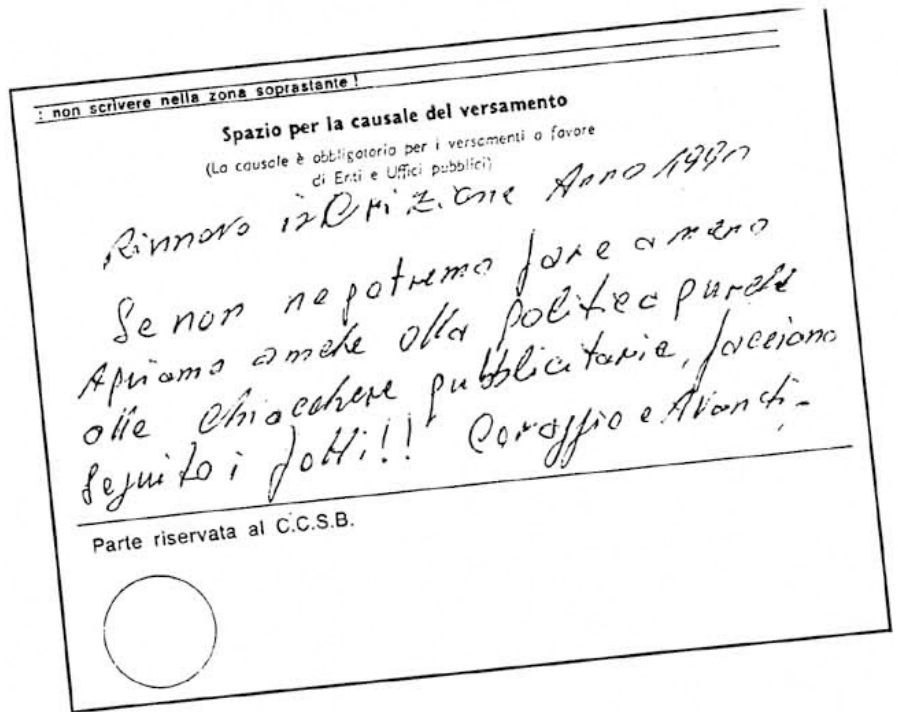 : non scrivere nella zona soprastante !
Spazio per la causale del versamento
(La causale è obbligatoria per i versamenti a favore
di Enti e Uffici pubblici)
Rinnovo iscrizione Anno 1990
Se non ne potremo fare a meno
Apriamo anche alla politica purché
alle chiacchere pubblicitarie, facciano
seguito i fatti!! Coraggio e Avanti-
Parte riservata al C.C.S.B.